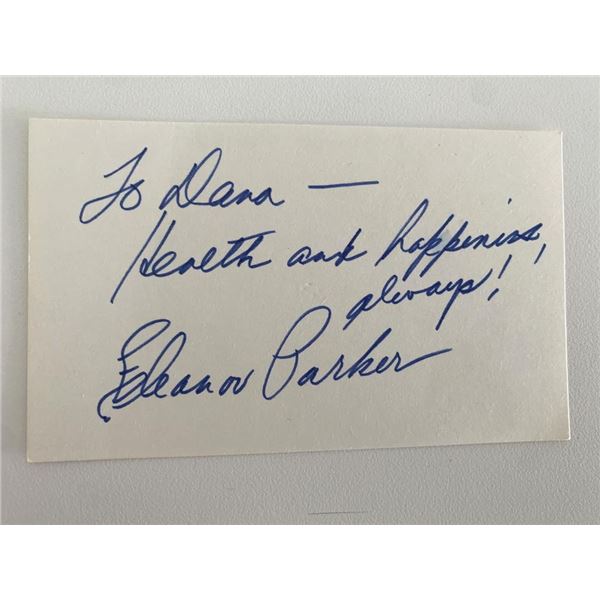 To Dana —
Health and happiness,
always!!
Eleanor Parker